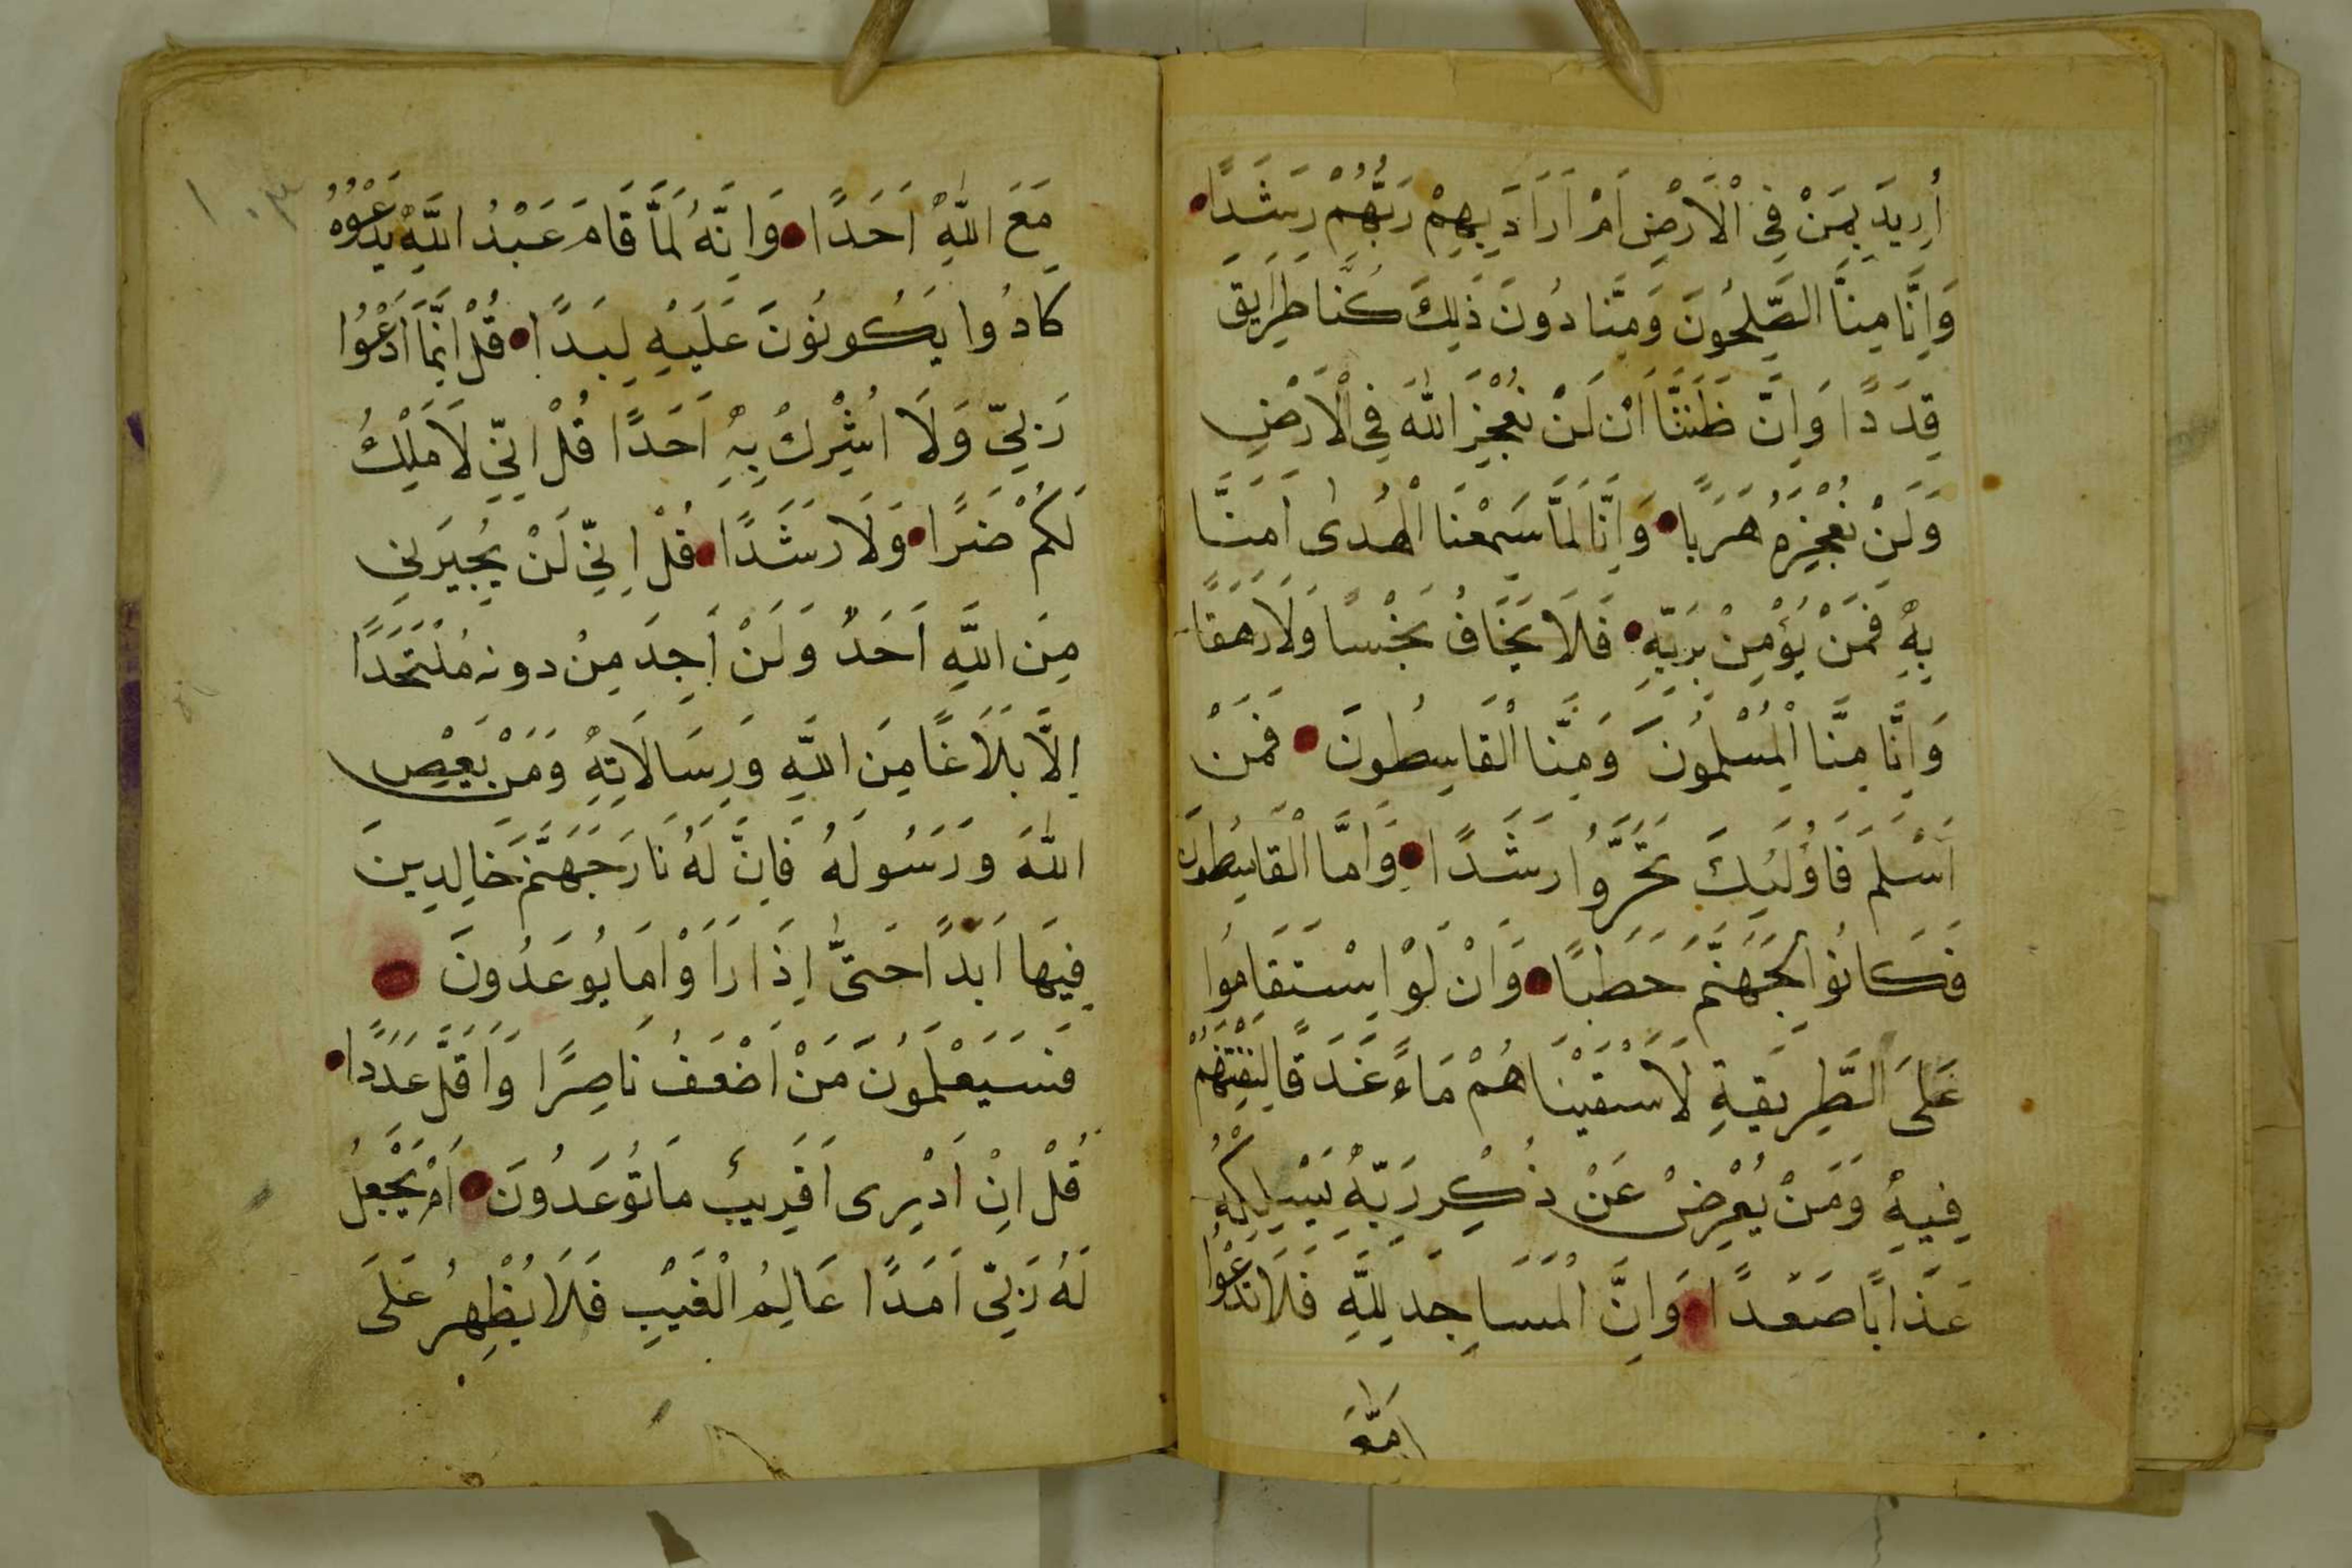 أُرِيدَ بِمَنْ فِى الْاَرْضِ اَمْ اَرَادَ بِهِمْ رَبُّهُمْ رَشَدًا
وَاِنَّا مِنَّا الصّٰلِحُونَ وَمِنَّا دُونَ ذٰلِكَ كُنَّا طَرَايِقَ
قِدَدًا وَاِنَّ ظَنَنَّا اَنْ لَنْ نُعْجِزَ اللّٰهَ فِى الْاَرْضِ
وَلَنْ نُعْجِزَهُ هَرَبًا وَاِنَّا لَمَّا سَمِعْنَا الْهُدٰى اٰمَنَّا
بِهٖ فَمَنْ يُؤْمِنْ بِرَبِّهٖ فَلَا يَخَافُ بَخْسًا وَلَا رَهَقًا
وَاِنَّا مِنَّا الْمُسْلِمُونَ وَمِنَّا الْقَاسِطُونَ فَمَنْ
اَسْلَمَ فَاُولٰئِكَ تَحَرَّوْا رَشَدًا وَاَمَّا الْقَاسِطُونَ
فَكَانُوا لِجَهَنَّمَ حَطَبًا وَاَنْ لَوْ اِسْتَقَامُوا
عَلَى الطَّرِيقَةِ لَاَسْقَيْنَاهُمْ مَاءً غَدَقًا لِنَفْتِنَهُمْ
فِيهِ وَمَنْ يُعْرِضْ عَنْ ذِكْرِ رَبِّهٖ يَسْلُكْهُ
عَذَابًا صَعَدًا وَاِنَّ الْمَسَاجِدَ لِلّٰهِ فَلَا تَدْعُوْا
مَعَ
مَعَ اللّٰهِ اَحَدًا وَاِنَّهُ لَمَّا قَامَ عَبْدُ اللّٰهِ يَدْعُوْهُ
كَادُوا يَكُونُونَ عَلَيْهِ لِبَدًا قُلْ اِنَّمَا اَدْعُوْا
رَبِّىْ وَلَا اُشْرِكْ بِهٖ اَحَدًا قُلْ اِنِّى لَا مَلِكُ
لَكُمْ ضَرًّا وَلَا رَشَدًا قُلْ اِنِّى لَنْ يُجِيرَنِى
مِنَ اللّٰهِ اَحَدٌ وَلَنْ اَجِدَ مِنْ دونه مُلْتَحَدًا
اِلَّا بَلَاغًا مِنَ اللّٰهِ وَرِسَالَاتِهٖ وَمَنْ يَعْصِ
اللّٰهَ وَرَسُولَهُ فَاِنَّ لَهُ نَارَ جَهَنَّمَ خَالِدِينَ
فِيهَا اَبَدًا حَتّٰى اِذَا رَاَوْا مَا يُوعَدُونَ
فَسَيَعْلَمُونَ مَنْ اَضْعَفُ نَاصِرًا وَاَقَلُّ عَدَدًا
قُلْ اِنْ اَدْرِى اَقَرِيبٌ مَا تُوعَدُونَ اَمْ يَجْعَلُ
لَهُ رَبِّىْ اَمَدًا عَالِمُ الْغَيْبِ فَلَا يُظْهِرُ عَلَى